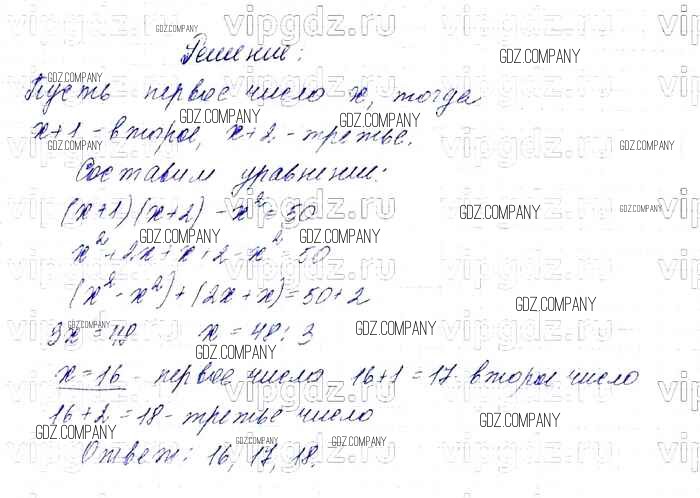 Решение:
Пусть первое число x, тогда
x+1 - второе, x+2 - третье.
Составим уравнение:
(x+1)(x+2) - x² = 50
x² + 2x + x + 2 - x² = 50
(x² - x²) + (2x + x) = 50 + 2
3x = 48 x = 48 : 3
x = 16 - первое число 16+1 = 17 - второе число
16+2 = 18 - третье число
Ответ: 16, 17, 18.
vipgdz.ru
GDZ.COMPANY